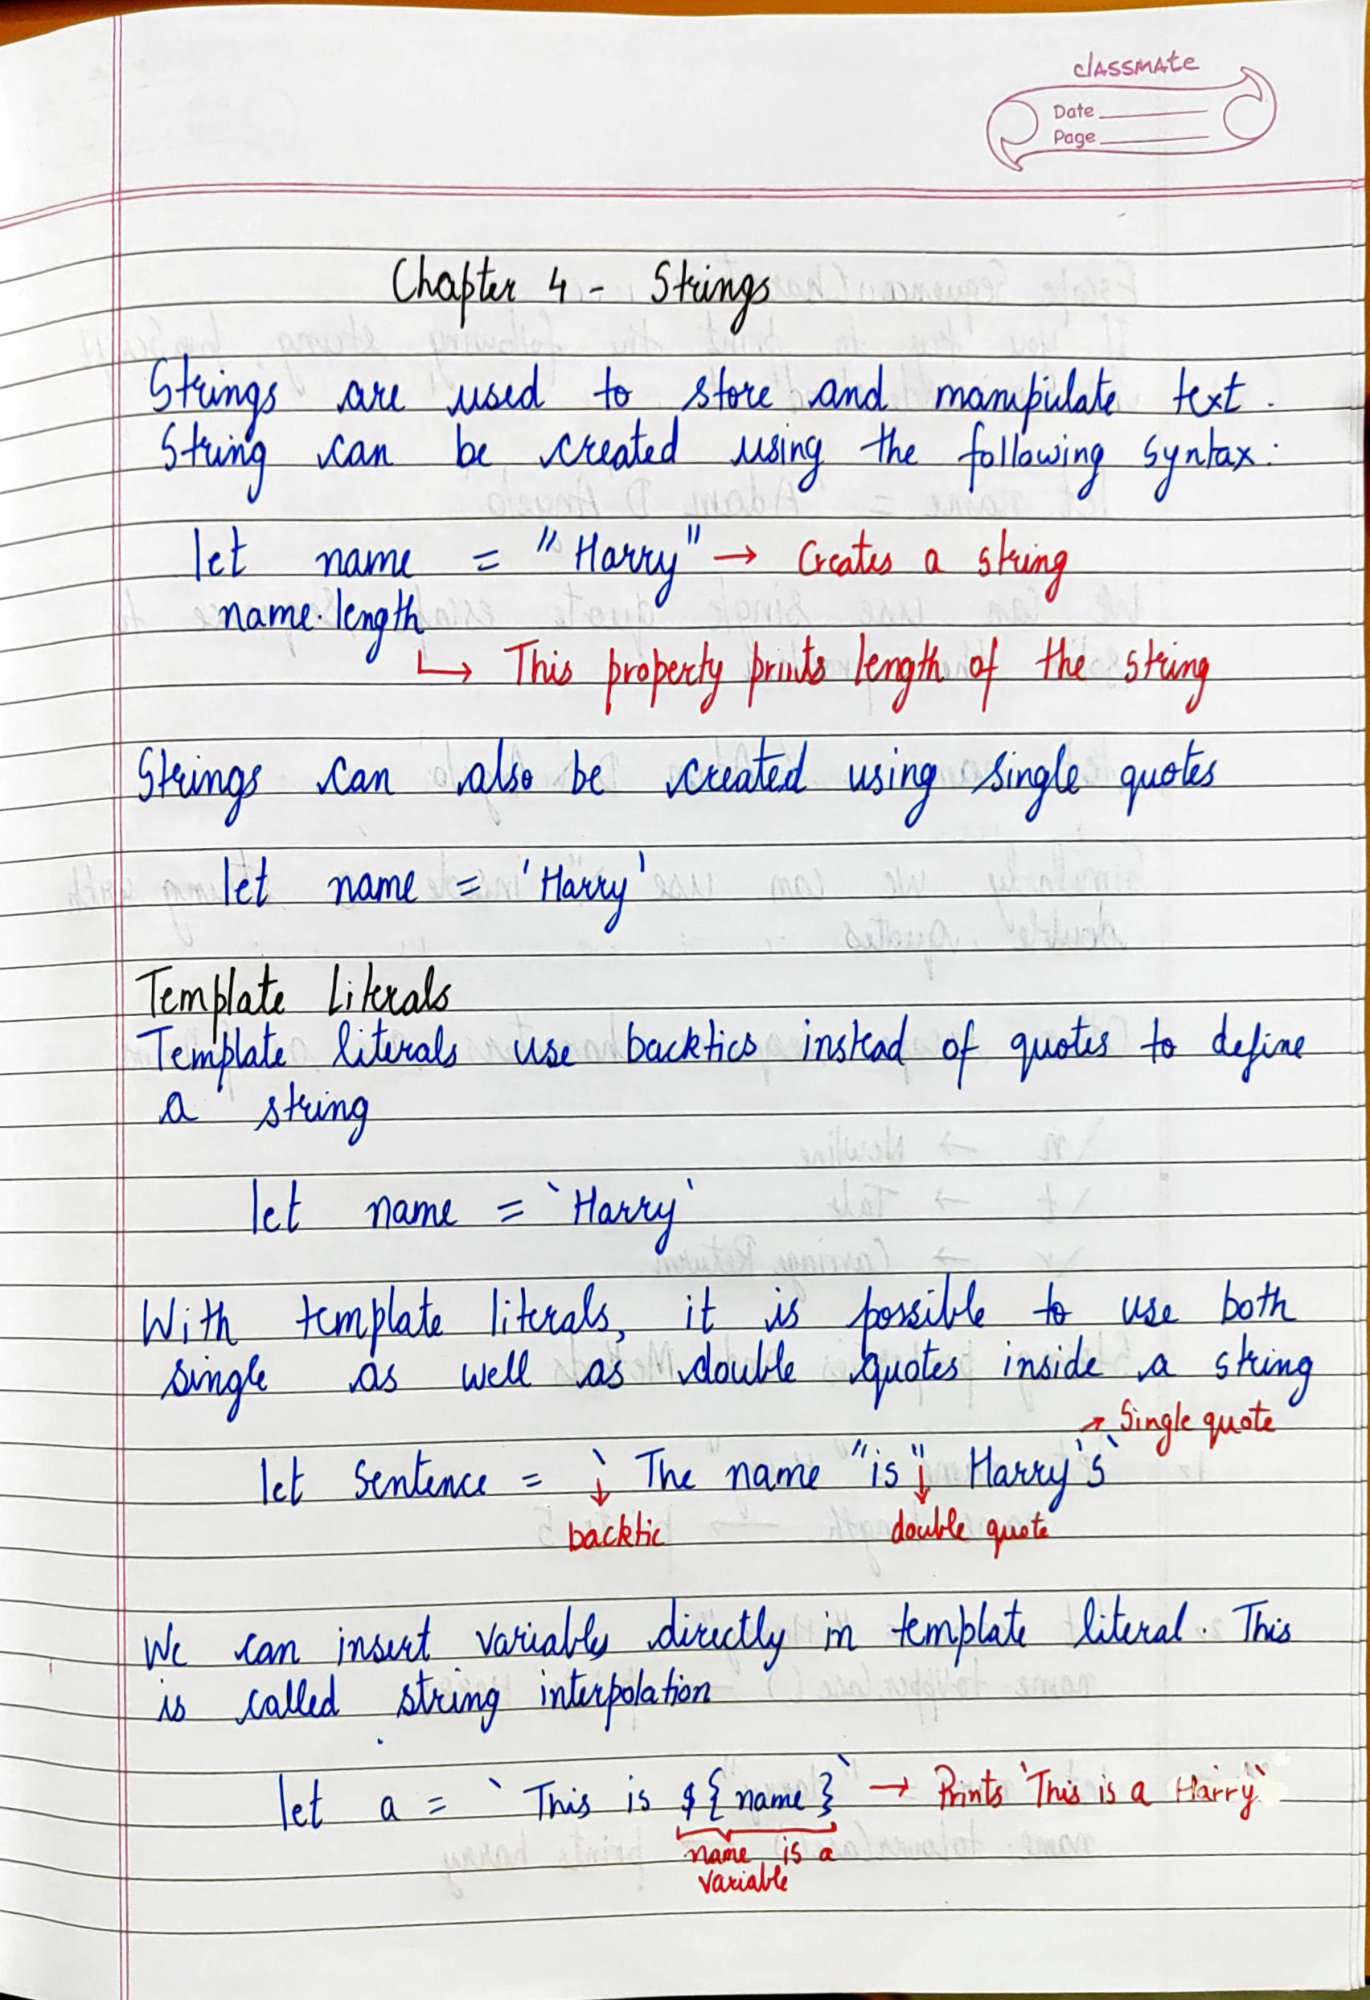 classmate
Date
Page
Chapter 4 - Strings
Strings are used to store and manipulate text.
String can be created using the following syntax:
let name = "Harry" → Creates a string
name.length
↳ This property prints length of the string
Strings can also be created using single quotes
let name = 'Harry'
Template Literals
Template literals use backtics instead of quotes to define
a string
let name = `Harry`
With template literals, it is possible to use both
single as well as double quotes inside a string
→ Single quote
let sentence = ` The name "is" Harry's`
↓ backtic ↓ double quote
We can insert variables directly in template literal. This
is called string interpolation
let a = `This is ${name}` → Prints `This is a Harry`
name is a
variable